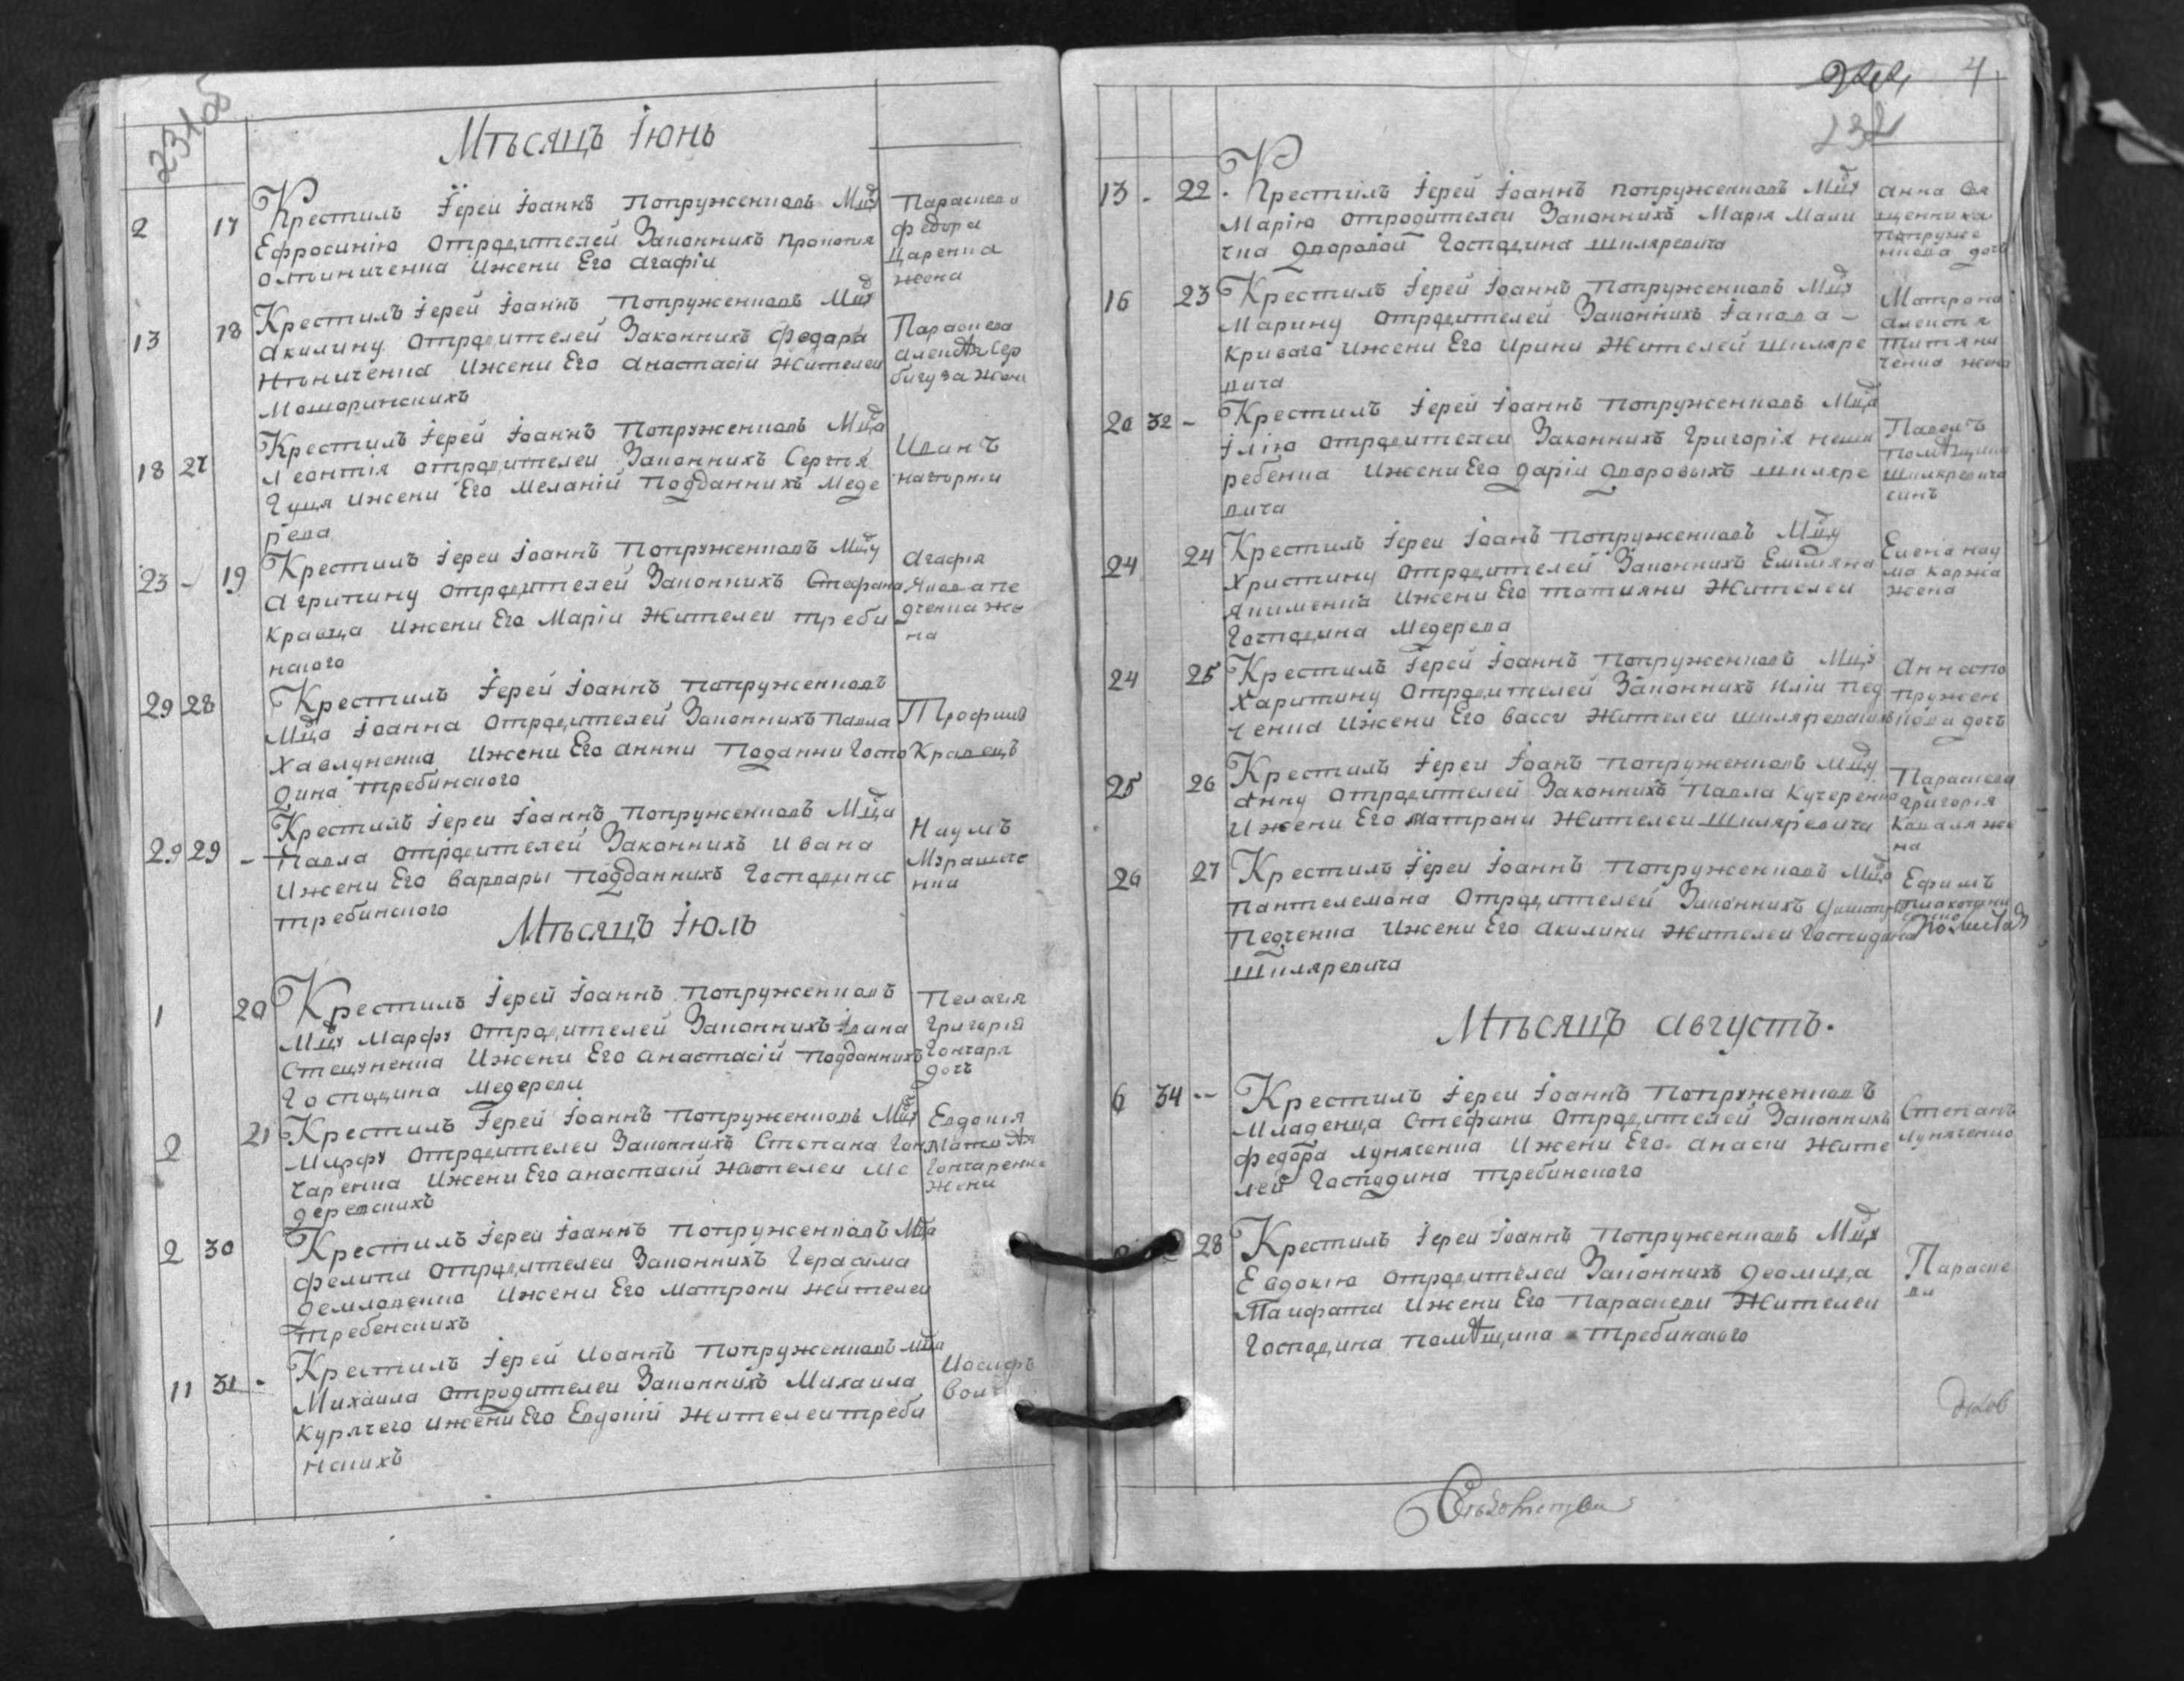 231об
Мѣсяцъ Іюнь
2 17 Крестилъ Іерей Іоаннъ Попружениовъ Млцу
Ефросинію отродителей Законнихъ
Ижени Его Агафіи
Параскева
Федора
Царенка
жена
13 18 Крестилъ Іерей Іоаннъ Попружениовъ Млцу
Акилину отродителей Законнихъ Федора
Ижени Его Анастасіи Жителей
Мошоринскихъ
Параскева
жена
18 27 Крестилъ Іерей Іоаннъ Попружениовъ Млца
Леонтія отродителей Законнихъ Сергія
Гуця Ижени Его Меланій Подданнихъ Меде
рева
Иванъ
Нагорній
23 - 19 Крестилъ Іерей Іоаннъ Попружениовъ Млцу
Агрипину отродителей Законнихъ Стефана
Кравца Ижени Его Маріи Жителей треби
нского
Агафія
Якова Пе
дченка же
на
29 28 Крестилъ Іерей Іоаннъ Попружениовъ
Млца Іоанна отродителей Законнихъ Павла
Ижени Его Анны Поданни Госпо
дина требинского
Трофимъ
Кравецъ
29 29 - Крестилъ Іерей Іоаннъ Попружениовъ Млца
Павла отродителей Законнихъ Ивана
Ижени Его Варвары Подданнихъ Господина
требинского
Наумъ
Мѣсяцъ Іюль
1 20 Крестилъ Іерей Іоаннъ Попружениовъ
Млцу Марфу отродителей Законнихъ Івана
Стецуненка Ижени Его Анастасій Подданнихъ
Господина Медереви
Пелагія
Григорія
Гончаря
дочь
2 21 Крестилъ Іерей Іоаннъ Попружениовъ Млцу
Марфу отродителей Законнихъ Степана Гон
чаренка Ижени Его Анастасій Жителей Ме
деревскихъ
Евдокія
Гончаренка
Жена
2 30 Крестилъ Іерей Іоаннъ Попружениовъ Млца
Фелипа отродителей Законнихъ Герасима
Ижени Его Матрони жителей
требенскихъ
11 31 - Крестилъ Іерей Иоаннъ Попружениовъ Млца
Михаила отродителей Законнихъ Михаила
Курячего Ижени Его Евдокій Жителей треби
нскихъ
Иосифъ
4
232
13 - 22 Крестилъ Іерей Іоаннъ Попружениовъ Млцу
Марію отродителей Законнихъ Марія
дворовой Господина Шкляревича
Анна Свя
щенника
Попруже
ниова дочь
16 23 Крестилъ Іерей Іоаннъ Попружениовъ Млцу
Марину отродителей Законнихъ Іакова -
Кривого Ижени Его Ирини Жителей Шкляре
вича
Матрона
Алексія
жена
20 32 - Крестилъ Іерей Іоаннъ Попружениовъ Млца
Ілію отродителей Законнихъ Григорія
Ижени Его Даріи дворовыхъ Шкляре
вича
Павелъ
Помѣщика
Шкляревича
синъ
24 24 Крестилъ Іерей Іоанъ Попружениовъ Млцу
Христину отродителей Законнихъ Емилияна
Якименка Ижени Его Татияни Жителей
Господина Медерева
Елена Нау
ма Коржа
жена
24 25 Крестилъ Іерей Іоаннъ Попружениовъ Млцу
Харитину отродителей Законнихъ Иліи Пед
ченка Ижени Его Васси Жителей
Анна По
пружен
иова дочь
25 26 Крестилъ Іерей Іоанъ Попружениовъ Млцу
Анну отродителей Законнихъ Павла Кучеренка
Ижени Его Матрони Жителей Шкляревича
Параскева
Григорія
Коваля же
на
26 27 Крестилъ Іерей Іоаннъ Попружениовъ Млца
Пантелемона отродителей Законнихъ
Педченка Ижени Его Акилини Жителей Господина
Шкляревича
Ефимъ
Мѣсяцъ Августъ.
6 34 -- Крестилъ Іерей Іоаннъ Попружениовъ
Младенца Стефана отродителей Законнихъ
Федора Луняченка Ижени Его Анасіи Жите
лей Господина требинского
Степанъ
Луняченко
28 Крестилъ Іерей Іоаннъ Попружениовъ Млцу
Евдокію отродителей Законнихъ Деомида
Ижени Его Параскеви Жителей
Господина Помѣщика требинского
Параске
ва